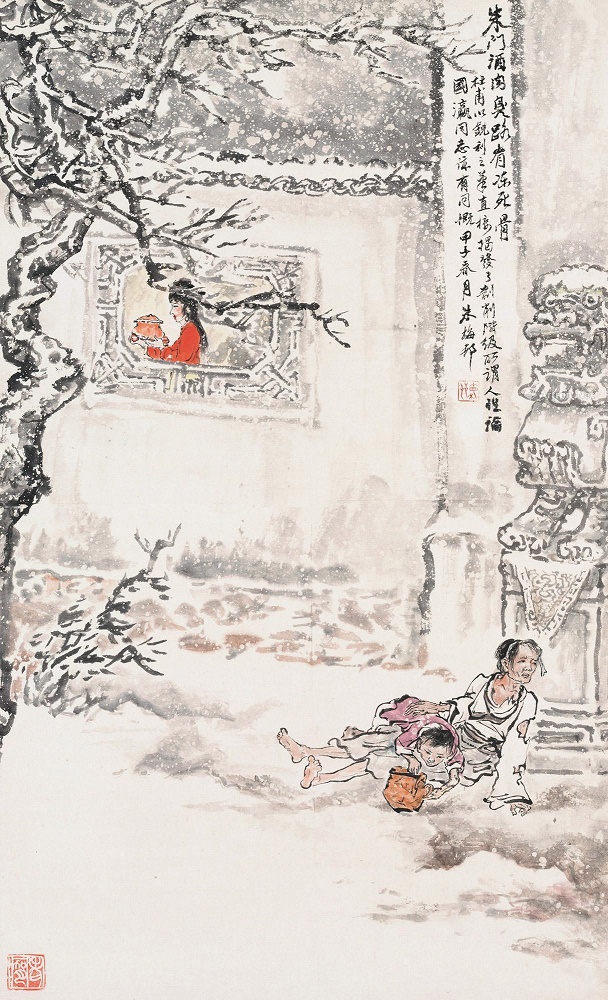 朱门酒肉臭路有冻死骨
杜甫以銳利之筆直接揭發了剝削階級所謂人性論
國瀛同志諒有同慨 甲子春月 朱梅邨